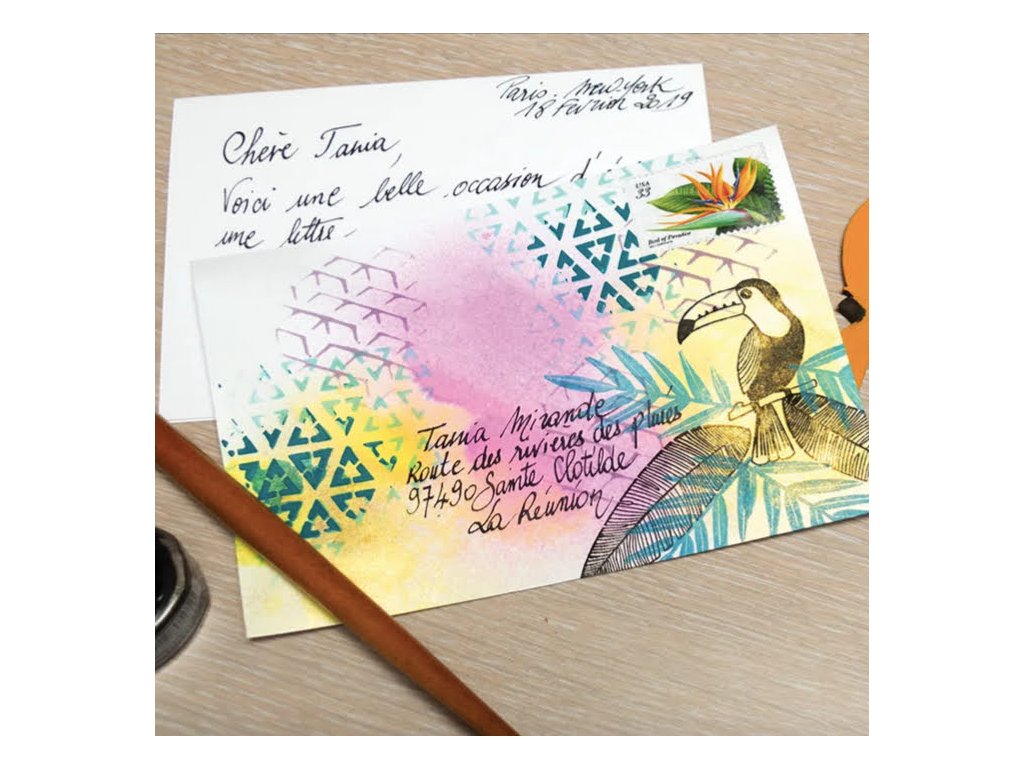 Paris. New York
18 Fevrier 2019
Chère Tania,
Voici une belle occasion d'é
une lettre.
USA
33
Bird of Paradise
Tania Mirande
Route des rivieres des pluies
97490 Sainte Clotilde
La Réunion